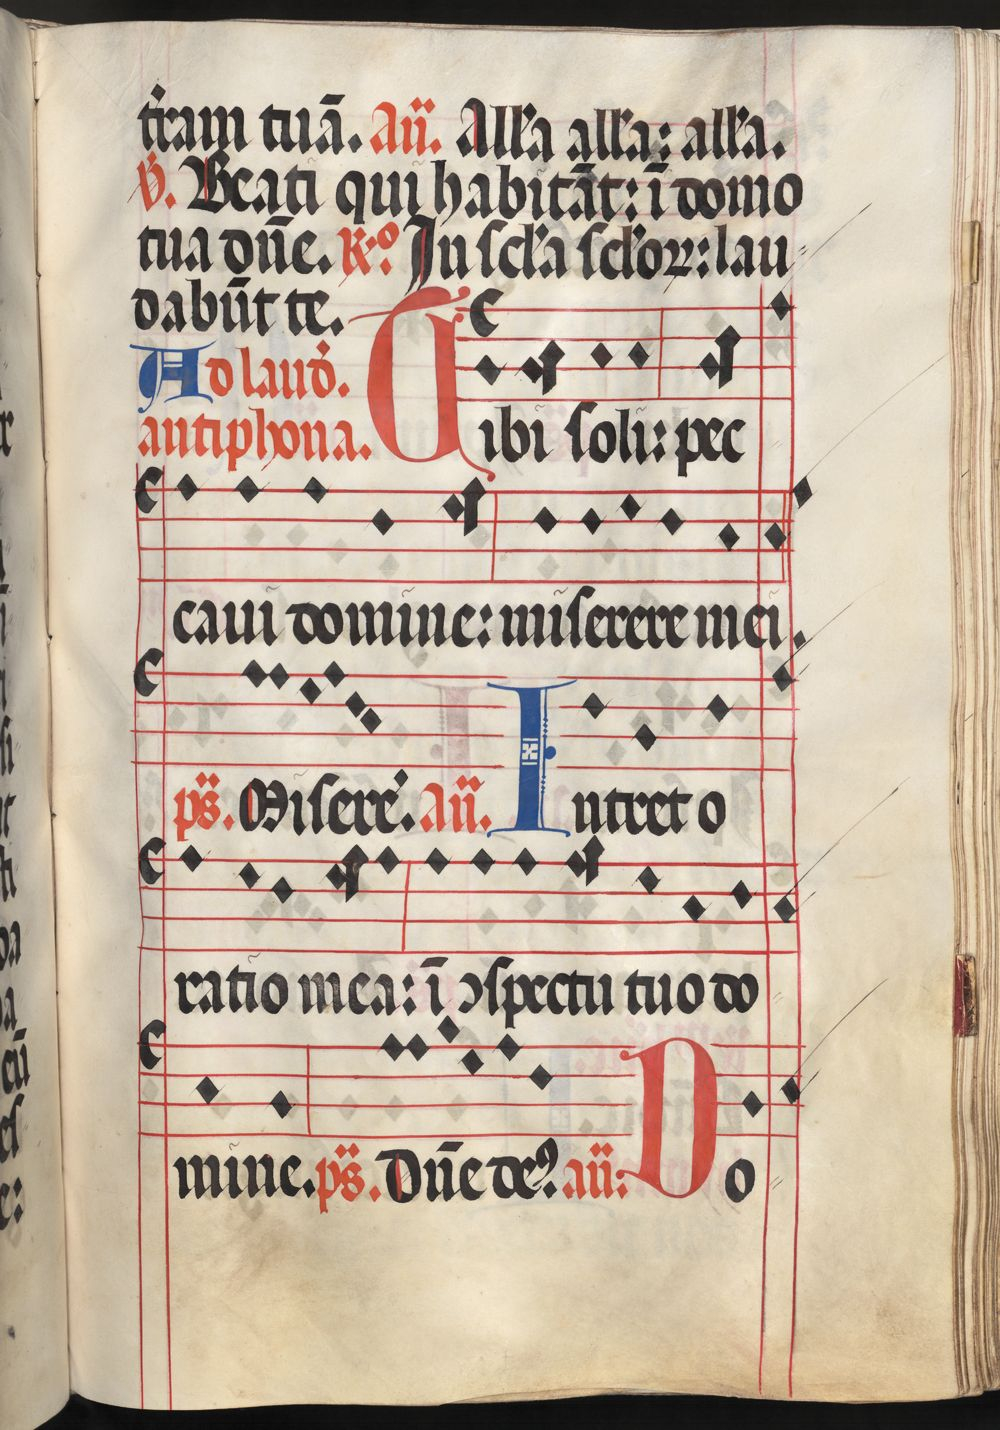 t̃ram tuā. añ. Allã allã: allã.
v̾. Beati qui habitāt: ī domo
tua dñe. R̾º. In scl̃a scl̃oꝝ: lau
dabūt te.
Ad laud̾.
antiphona.
Tibi soli: pec
caui domine: miserere mei.
ps̃. Miserẽ. añ. Intret o
ratio mea: ī ↄspectu tuo do
mine. ps̃. Dñe deꝰ. añ: Do